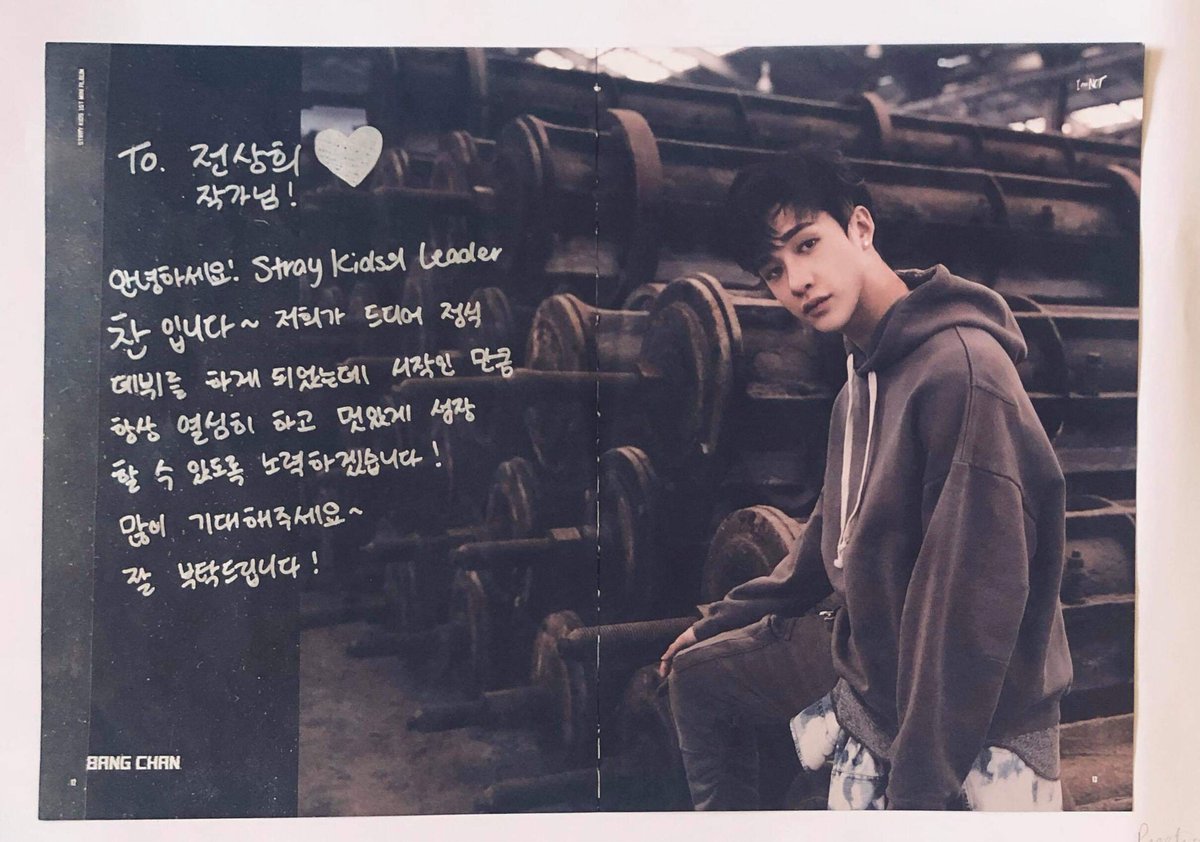 STRAY KIDS 1ST MINI ALBUM
I am NOT
To. 전상희
작가님!
안녕하세요! Stray Kids의 Leader
찬 입니다~ 저희가 드디어 정식
데뷔를 하게 되었는데 시작인 만큼
항상 열심히 하고 멋있게 성장
할 수 있도록 노력하겠습니다!
많이 기대해주세요~
잘 부탁드립니다!
BANG CHAN
12
13